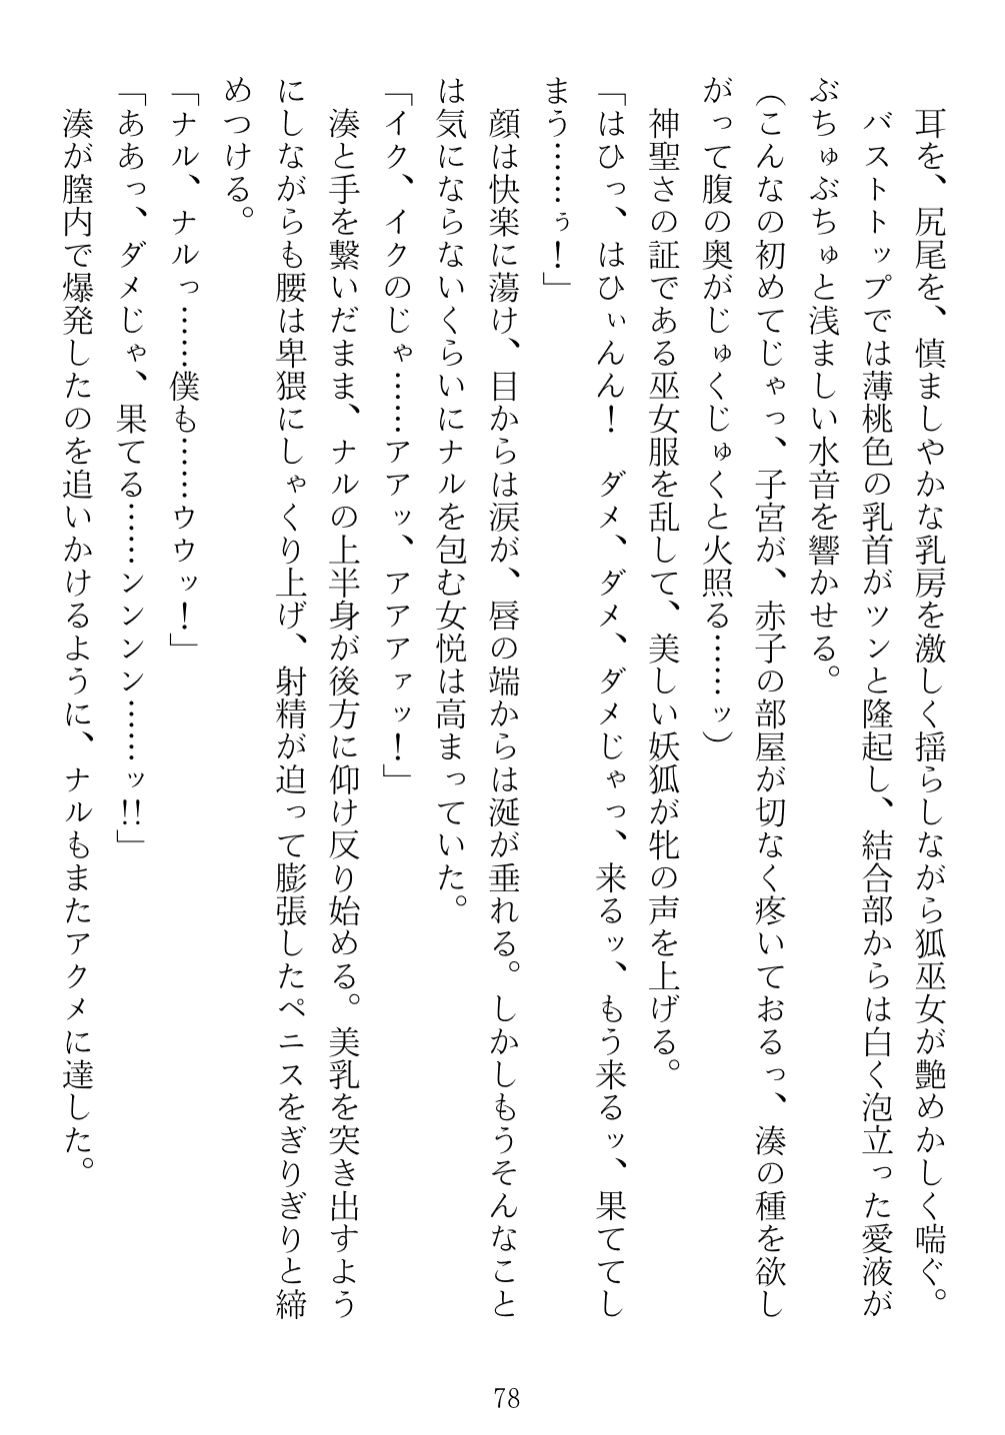 耳を、尻尾を、慎ましやかな乳房を激しく揺らしながら狐巫女が艶めかしく喘ぐ。
バストトップでは薄桃色の乳首がツンと隆起し、結合部からは白く泡立った愛液が
ぶちゅぶちゅと浅ましい水音を響かせる。
(こんなの初めてじゃっ、子宮が、赤子の部屋が切なく疼いておるっ、湊の種を欲し
がって腹の奥がじゅくじゅくと火照る……ッ)
神聖さの証である巫女服を乱して、美しい妖狐が牝の声を上げる。
「はひっ、はひぃんん！　ダメ、ダメ、ダメじゃっ、来るッ、もう来るッ、果ててし
まう……ぅ！」
顔は快楽に蕩け、目からは涙が、唇の端からは涎が垂れる。しかしもうそんなこと
は気にならないくらいにナルを包む女悦は高まっていた。
「イク、イクのじゃ……アアッ、アアアァッ！」
湊と手を繋いだまま、ナルの上半身が後方に仰け反り始める。美乳を突き出すよう
にしながらも腰は卑猥にしゃくり上げ、射精が迫って膨張したペニスをぎりぎりと締
めつける。
「ナル、ナルっ……僕も……ゥゥッ！」
「ああっ、ダメじゃ、果てる……ンンンン……ッ!!」
湊が膣内で爆発したのを追いかけるように、ナルもまたアクメに達した。
78